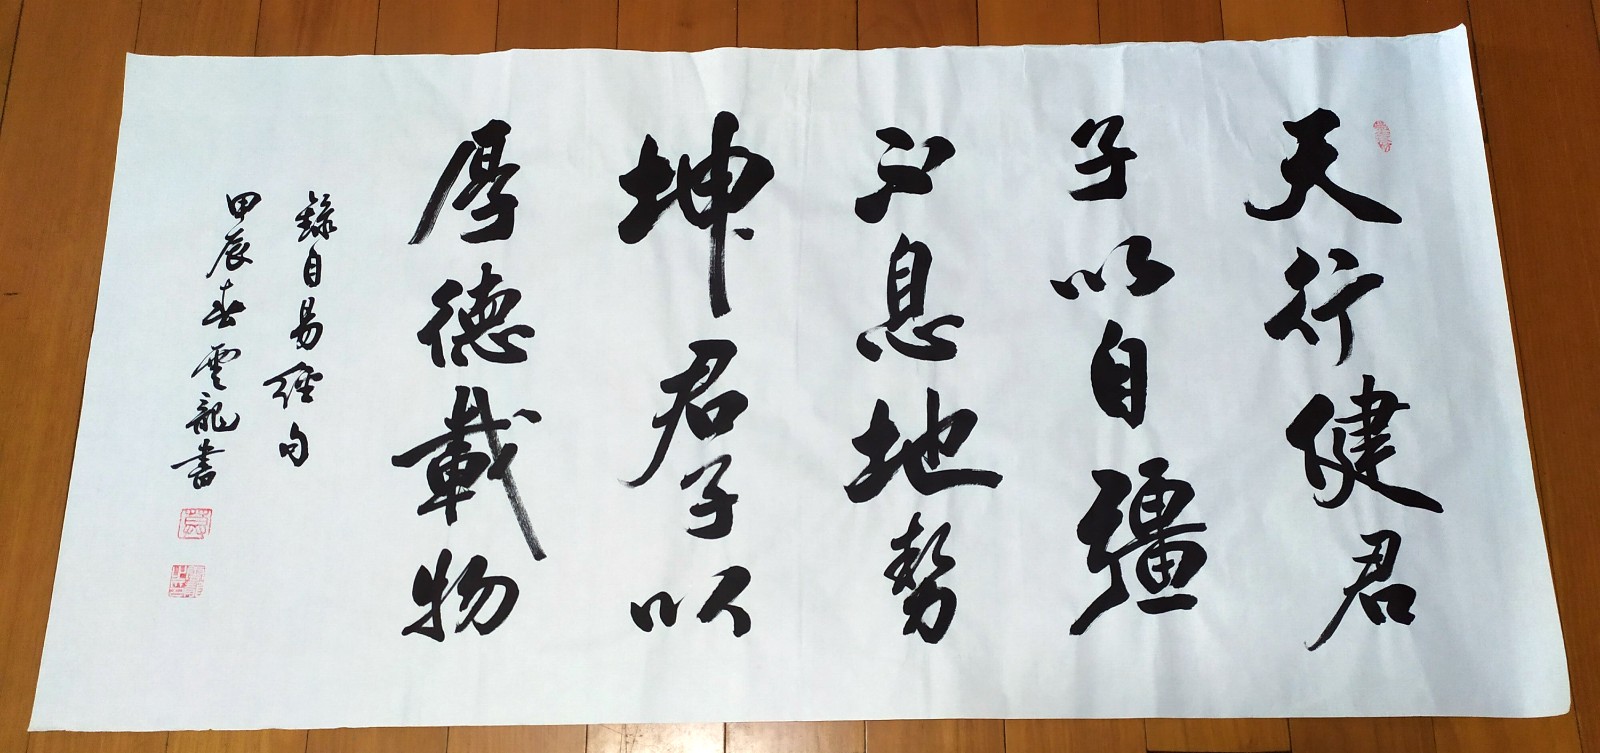 天行健君
子以自彊
不息地势
坤君子以
厚德載物
錄自易經句
甲辰春雲龍書